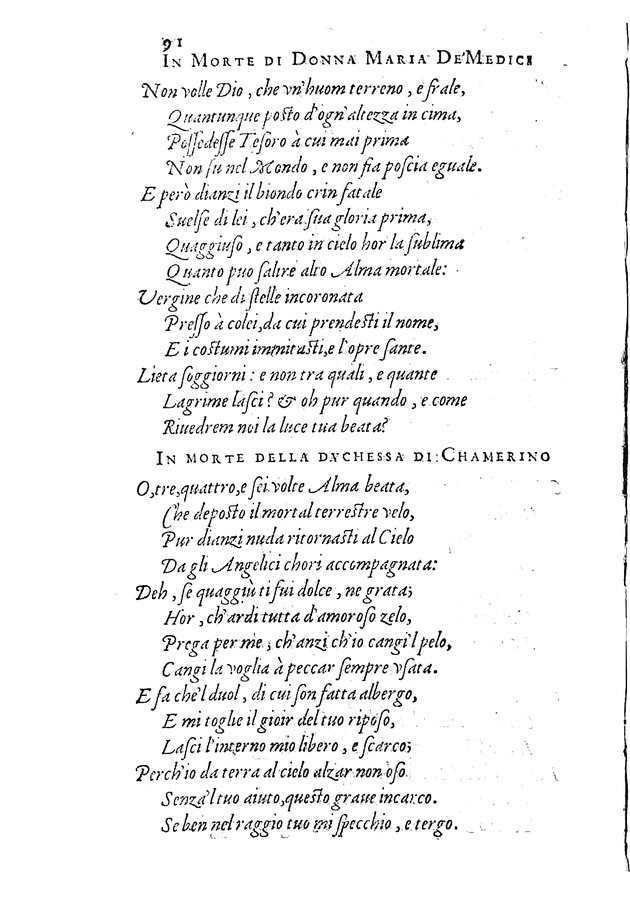 91
IN MORTE DI DONNA MARIA DE' MEDICI
Non volle Dio, che vn'huom terreno, e frale,
Quantunque posto d'ogn'altezza in cima,
Poſſedeſſe Teſoro à cui mai prima
Non fu nel Mondo, e non fia poſcia eguale.
E però dianzi il biondo crin fatale
Suelſe di lei, ch'era ſua gloria prima,
Quaggiuſo, e tanto in cielo hor la ſublima
Quanto puo ſalire alto Alma mortale:
Vergine che di ſtelle incoronata
Preſſo à colei, da cui prendeſti il nome,
E i coſtumi immitaſti, e l'opre ſante.
Lieta ſoggiorni: e non tra quali, e quante
Lagrime laſci? & oh pur quando, e come
Riuedrem noi la luce tua beata?
IN MORTE DELLA DVCHESSA DI CHAMERINO
O, tre, quattro, e ſei volte Alma beata,
Che depoſto il mortal terreſtre velo,
Pur dianzi nuda ritornaſti al Cielo
Da gli Angelici chori accompagnata:
Deh, ſe quaggiù ti fui dolce, ne grata;
Hor, ch'ardi tutta d'amoroſo zelo,
Prega per me, ch'anzi ch'io cangi'l pelo,
Cangi la voglia à peccar ſempre vſata.
E fa che'l duol, di cui ſon fatta albergo,
E mi toglie il gioir del tuo ripoſo,
Laſci l'interno mio libero, e ſcarco;
Perch'io da terra al cielo alzar non oſo
Senza'l tuo aiuto, queſto graue incarco.
Se ben nel raggio tuo mi ſpecchio, e tergo.